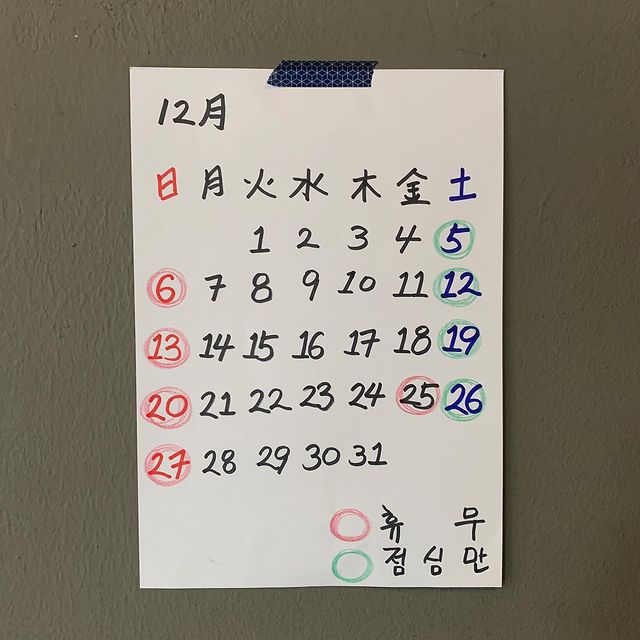 12月
日 月 火 水 木 金 土
1 2 3 4 5
6 7 8 9 10 11 12
13 14 15 16 17 18 19
20 21 22 23 24 25 26
27 28 29 30 31
휴 무
점심만